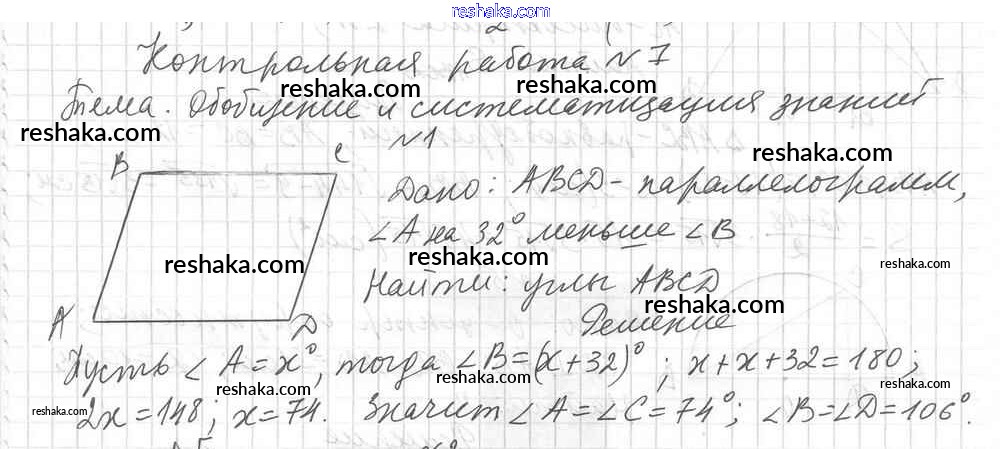 reshaka.com
Контрольная работа №7
reshaka.com
reshaka.com
Тема. Обобщение и систематизация знаний
reshaka.com
№1
reshaka.com
B C
Дано: ABCD - параллелограмм,
∠A на 32° меньше ∠B
reshaka.com
reshaka.com
Найти: углы ABCD
reshaka.com
A D
Решение
Пусть ∠A = x°, тогда ∠B = (x + 32)°; x + x + 32 = 180;
reshaka.com
reshaka.com
reshaka.com
reshaka.com
2x = 148; x = 74. Значит ∠A = ∠C = 74°; ∠B = ∠D = 106°.
reshaka.com
reshaka.com